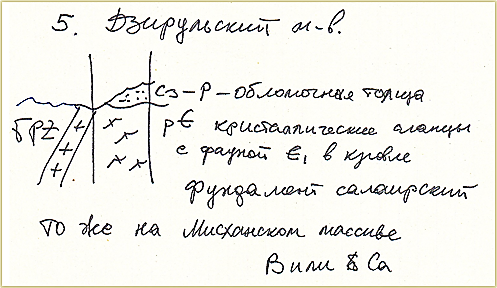 5. Дзирульский м-в.
C₃-P – обломочная толща
БPZ
p€ кристаллические сланцы
с фауной €₁ в кровле
фундамент салаирский
то же на Мисханском массиве
В или & Са